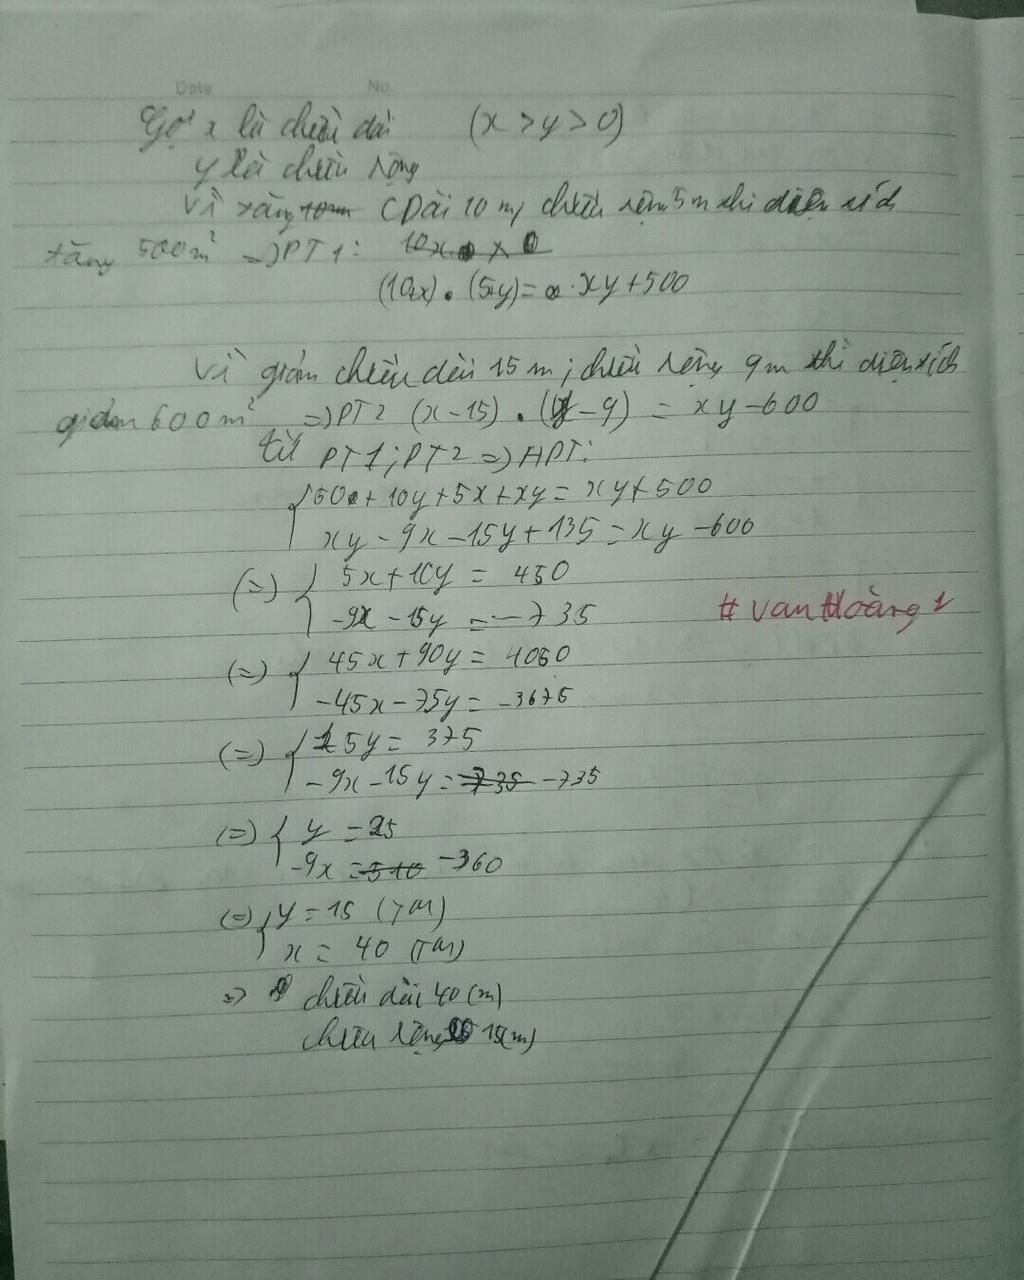 Date No.
Gọi x là chiều dài (x > y > 0)
y là chiều rộng
Vì tăng CDài 10 m, chiều rộng 5m thì diện tích
tăng 500m² => PT1:
(10+x).(5+y) = xy+500
Vì giảm chiều dài 15 m; chiều rộng 9m thì diện tích
giảm 600m² => PT2 (x-15).(y-9) = xy-600
từ PT1; PT2 => HPT:
50+10y+5x+xy = xy+500
xy-9x-15y+135 = xy-600
(=) { 5x+10y = 450
-9x-15y = -735
# VanHoàng1
(=) { 45x+90y = 4050
-45x-75y = -3675
(=) { 15y = 375
-9x-15y = -735
(=) { y = 25
-9x = -360
(=) { y = 15 (TM)
x = 40 (TM)
=> chiều dài 40 (m)
chiều rộng 15(m)